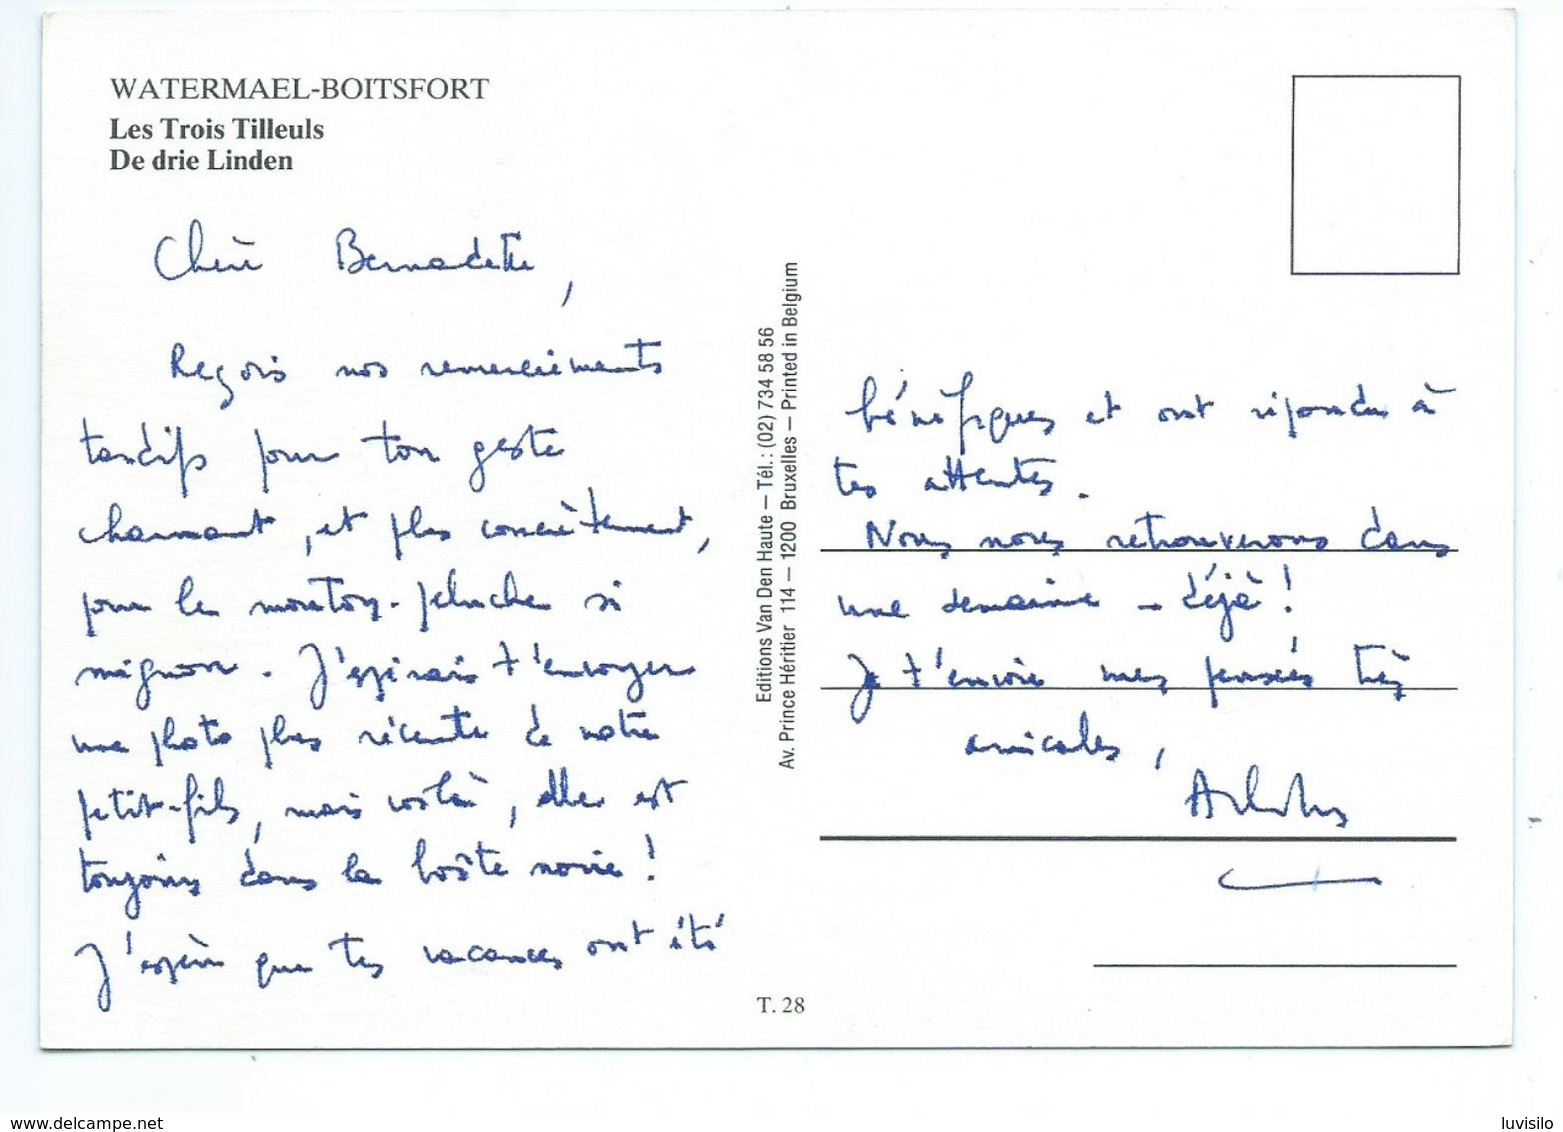 WATERMAEL-BOITSFORT
Les Trois Tilleuls
De drie Linden
Chère Bernadette,
Reçois nos remerciements
tardifs pour ton geste
charmant, et plus concrètement,
pour le mouton-peluche si
mignon. J'espérais t'envoyer
une photo plus récente de notre
petit-fils, mais voilà, elle est
toujours dans la boîte noire !
J'espère que tes vacances ont été
Editions Van Den Haute — Tél.: (02) 734 58 56
Av. Prince Héritier 114 — 1200 Bruxelles — Printed in Belgium
T. 28
bénéfiques et ont répondu à
tes attentes.
Nous nous retrouverons dans
une semaine – déjà !
Je t'envoie mes pensées très
amicales,
delcampe.net
luvisilo